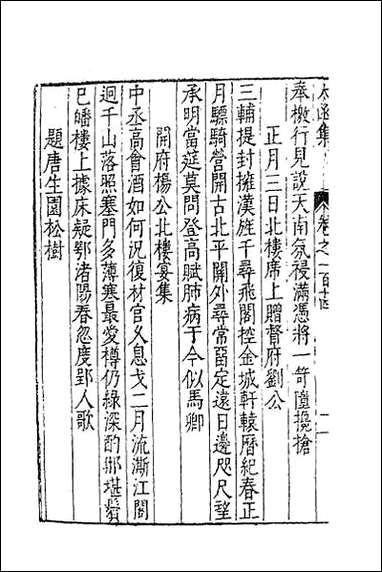 太函集 卷之一百十四 二
奉檄行見說天南氛祲滿憑將一箭墮攙搶
正月三日北樓席上贈督府劉公
三輔提封擁漢旌千尋飛閣控金城軒轅曆紀春正
月驃騎營開古北平關外尋常留定遠日邊咫尺望
承明當筵莫問登高賦肺病于今似馬卿
開府楊公北樓宴集
中丞高會酒如何況復材官久息戈二月流澌江閣
逈千山落照塞門多薄寒最愛樽仍綠深酌那堪鬢
已皤樓上據床疑鄂渚陽春忽度郢人歌
題唐生園松樹